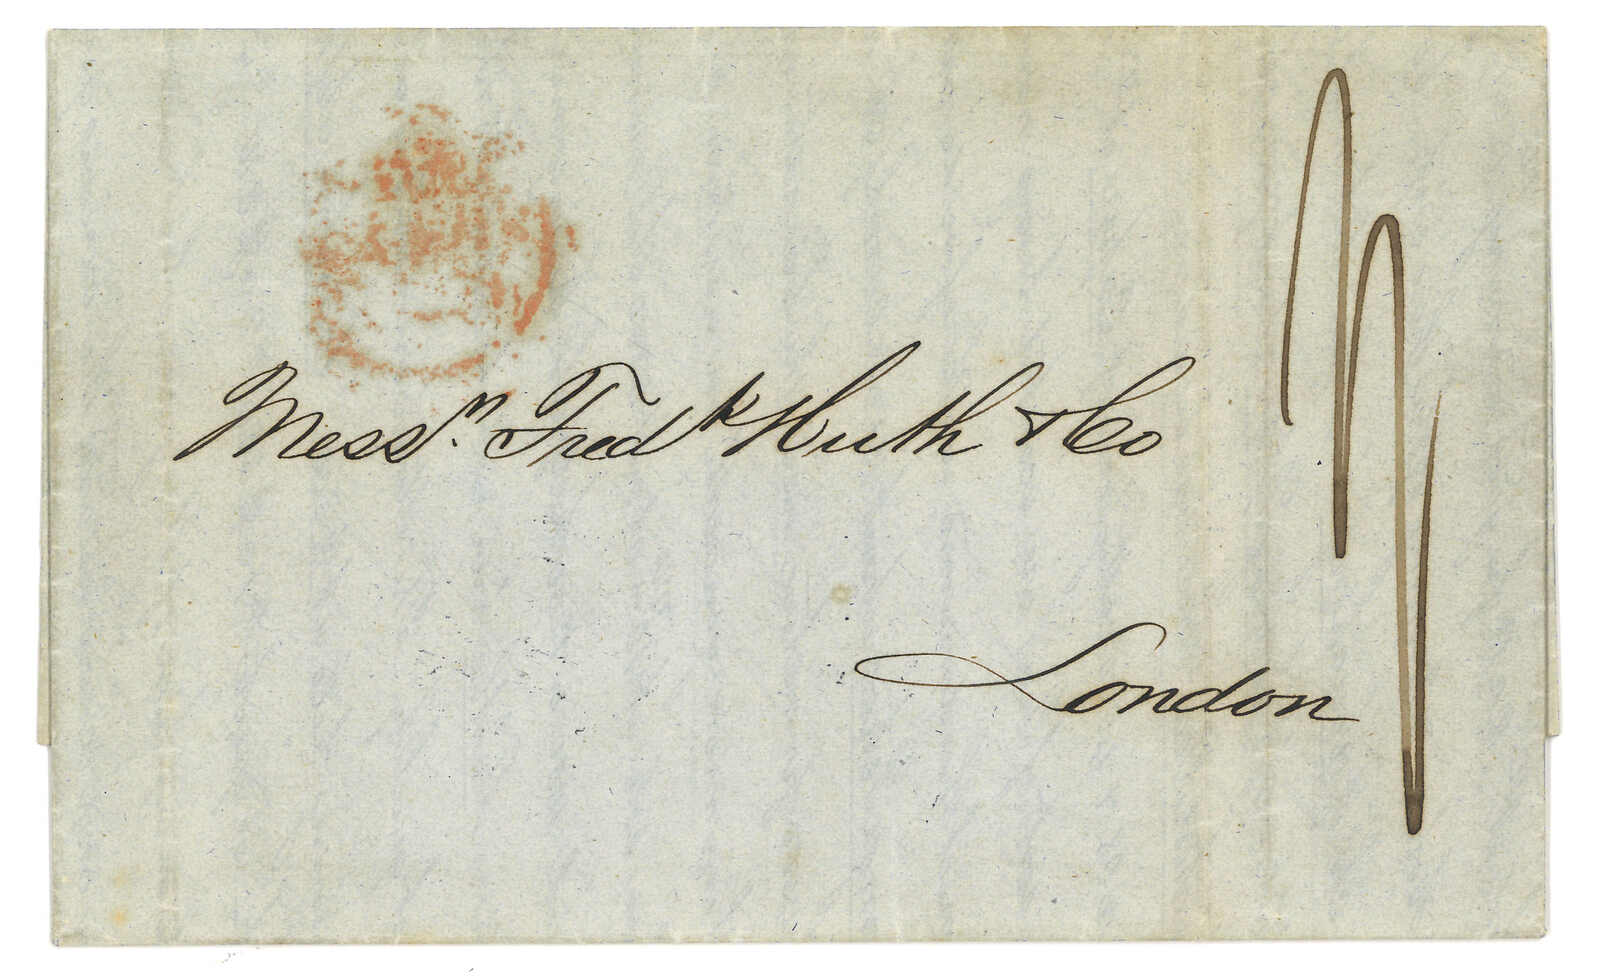 Messrs. Fredk Huth & Co
London